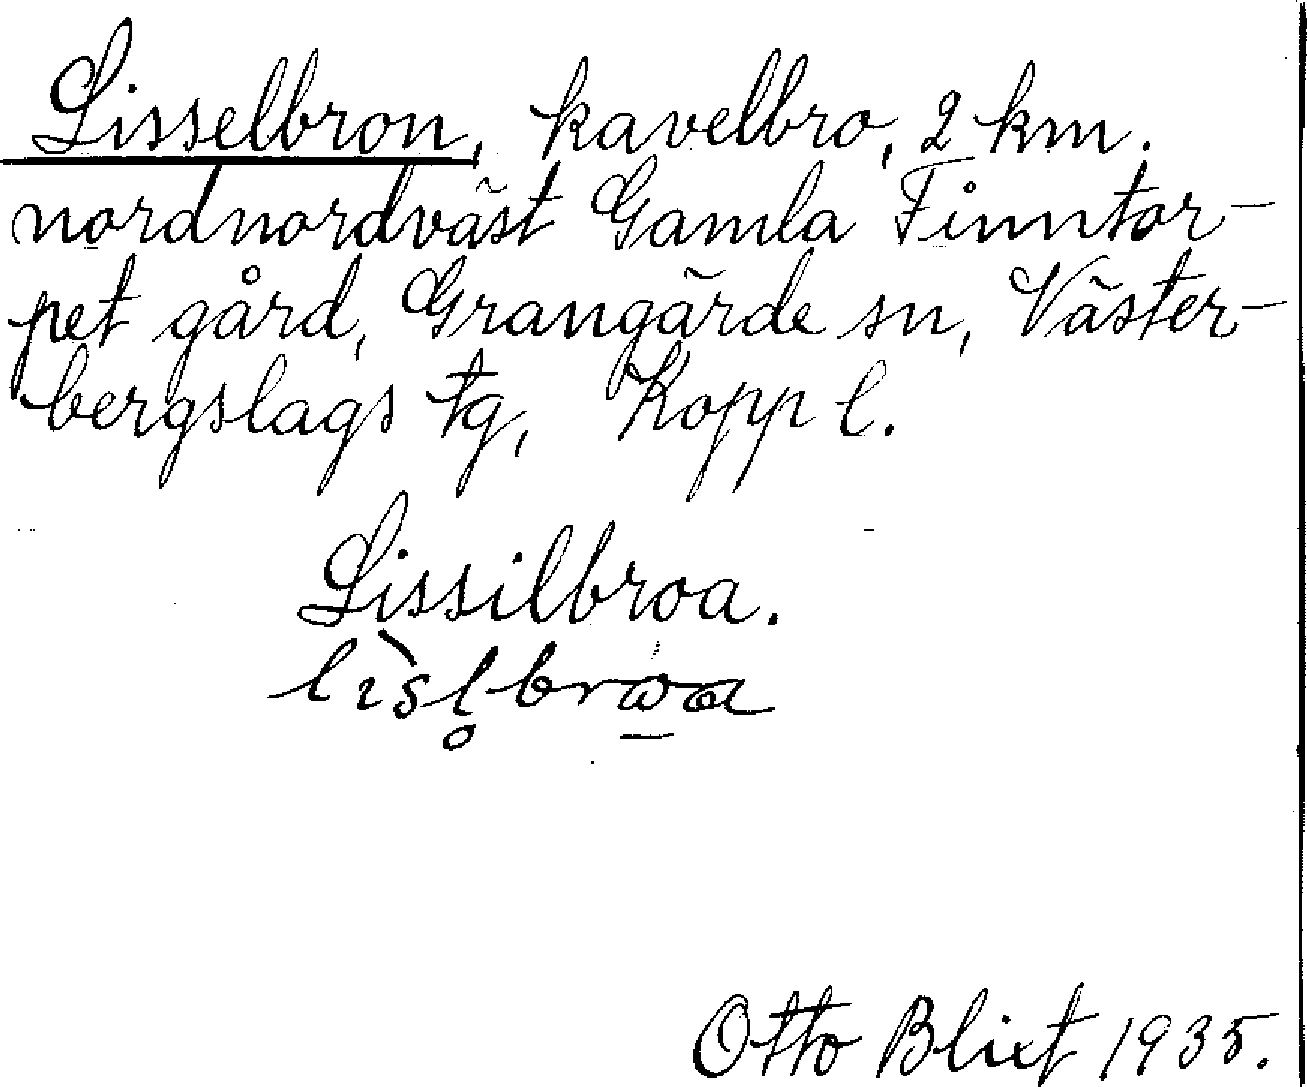 Lisselbron, kavelbro, 2 km.
nordnordväst Gamla Finntor-
pet gård, Grangärde sn, Väster-
bergslags tg, Kopp l.
Lissilbroa.
Otto Blixt 1935.